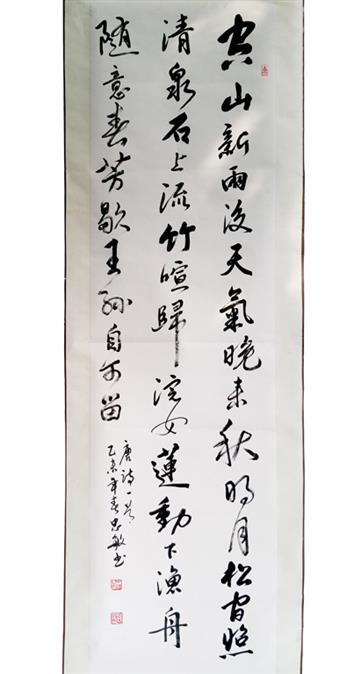 空山新雨後天氣晚来秋明月松間照
清泉石上流竹喧歸浣女蓮動下漁舟
随意春芳歇王孫自可留
唐詩一首
乙未年春忠敏书